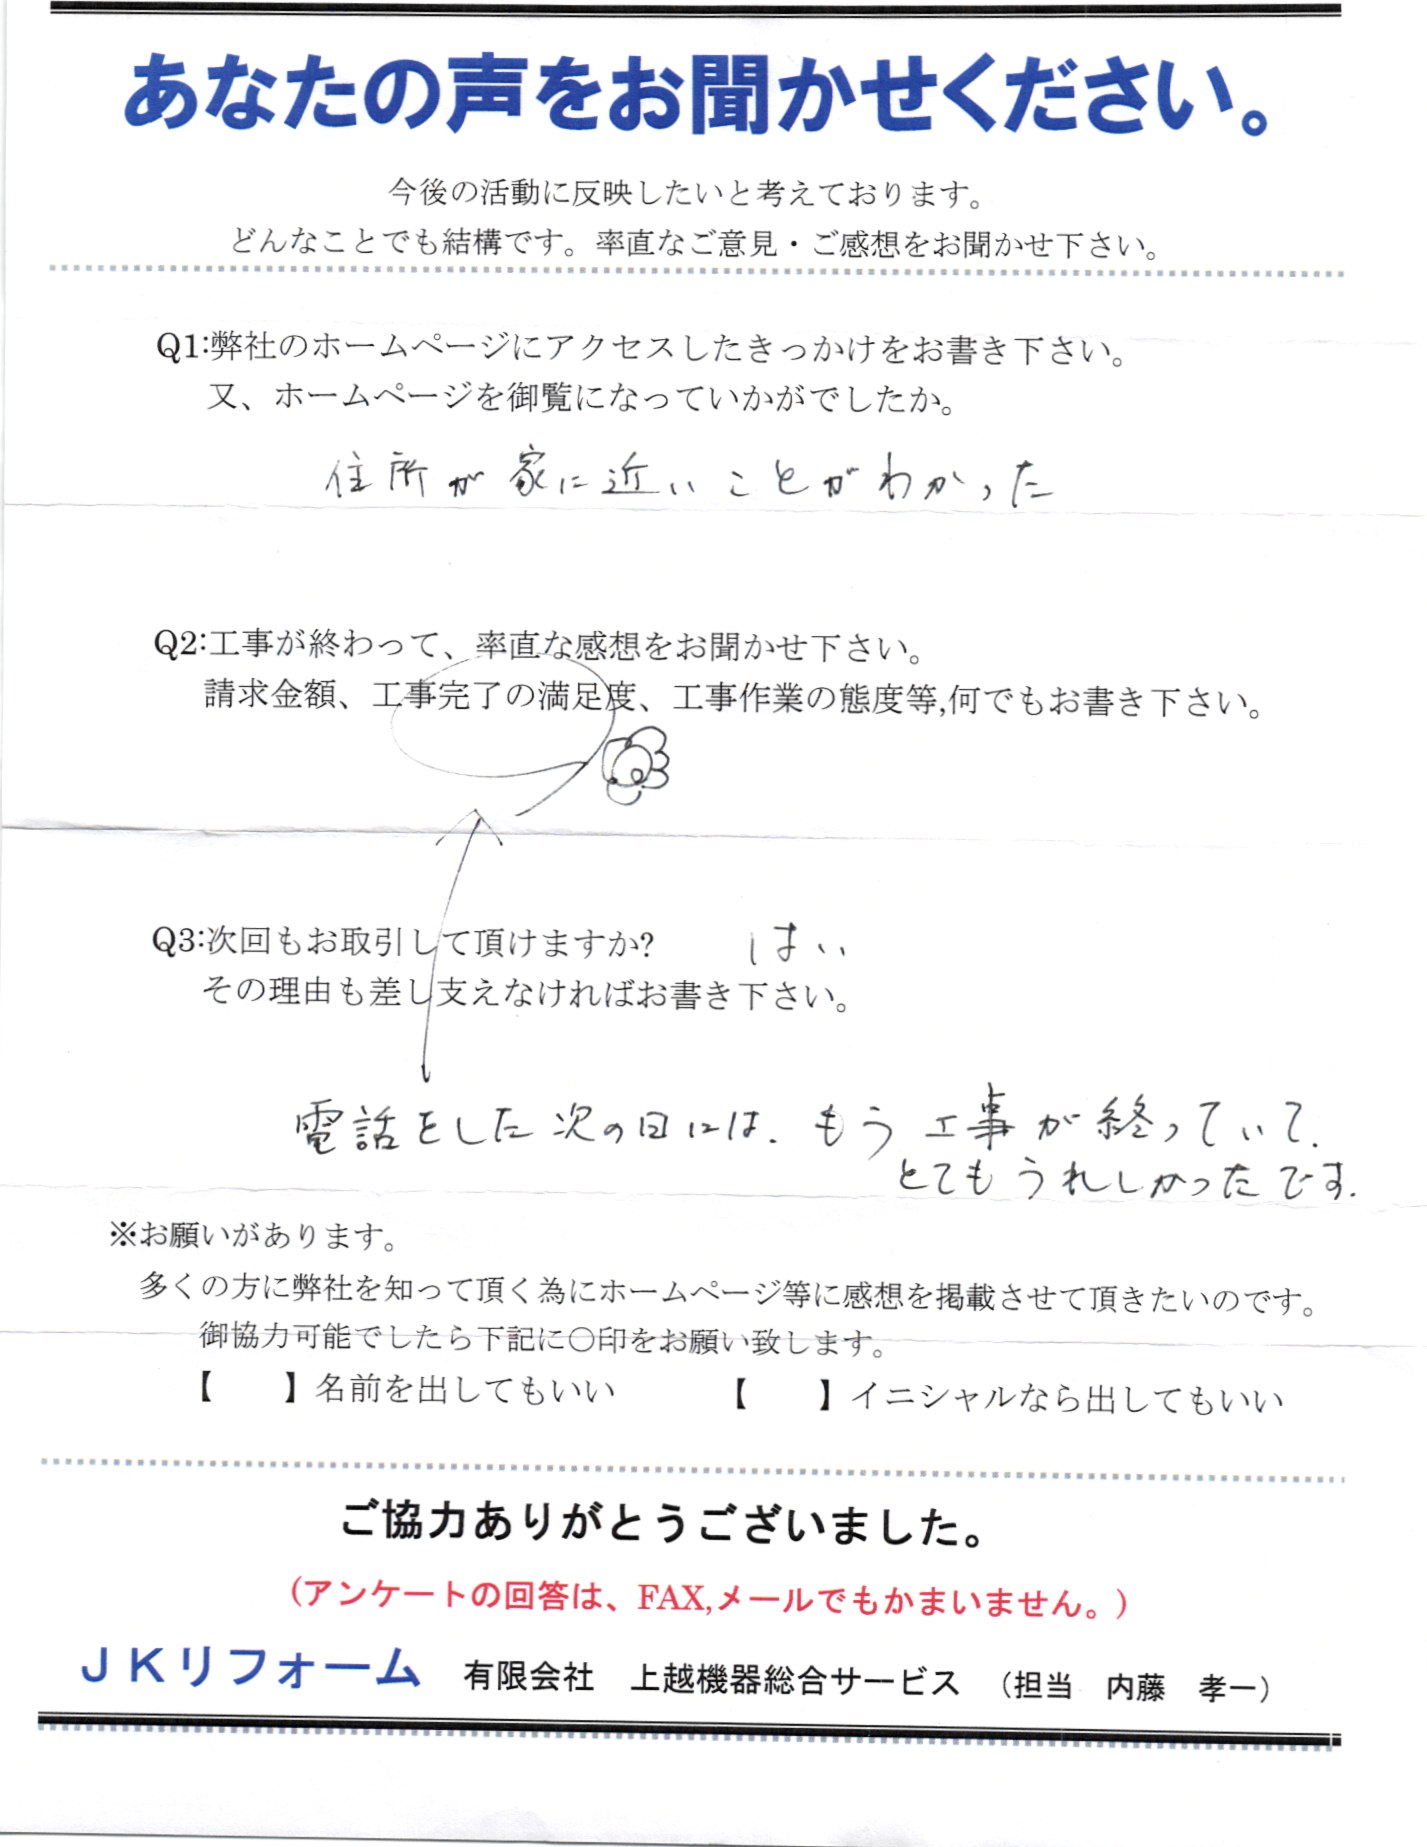 あなたの声をお聞かせください。
今後の活動に反映したいと考えております。
どんなことでも結構です。率直なご意見・ご感想をお聞かせ下さい。
Q1:弊社のホームページにアクセスしたきっかけをお書き下さい。
又、ホームページを御覧になっていかがでしたか。
住所が家に近いことがわかった
Q2:工事が終わって、率直な感想をお聞かせ下さい。
請求金額、工事完了の満足度、工事作業の態度等,何でもお書き下さい。
Q3:次回もお取引して頂けますか? はい
その理由も差し支えなければお書き下さい。
電話をした次の日には、もう工事が終っていて、
とてもうれしかったです。
※お願いがあります。
多くの方に弊社を知って頂く為にホームページ等に感想を掲載させて頂きたいのです。
御協力可能でしたら下記に〇印をお願い致します。
【　　】名前を出してもいい 【　　】イニシャルなら出してもいい
ご協力ありがとうございました。
(アンケートの回答は、FAX,メールでもかまいません。)
ＪＫリフォーム 有限会社　上越機器総合サービス　(担当　内藤　孝一)